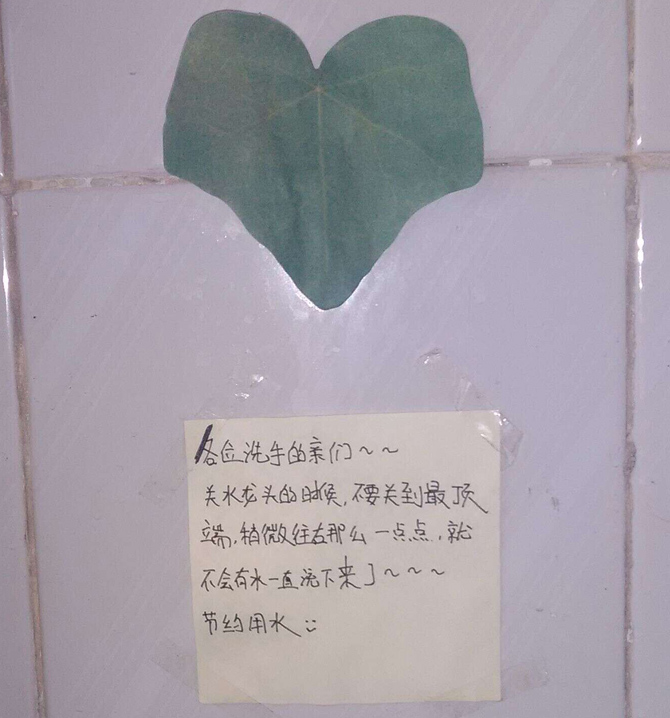 各位洗手的亲们~~
关水龙头的时候,不要关到最顶
端,稍微往右那么一点点,就
不会有水一直流下来了~~~
节约用水